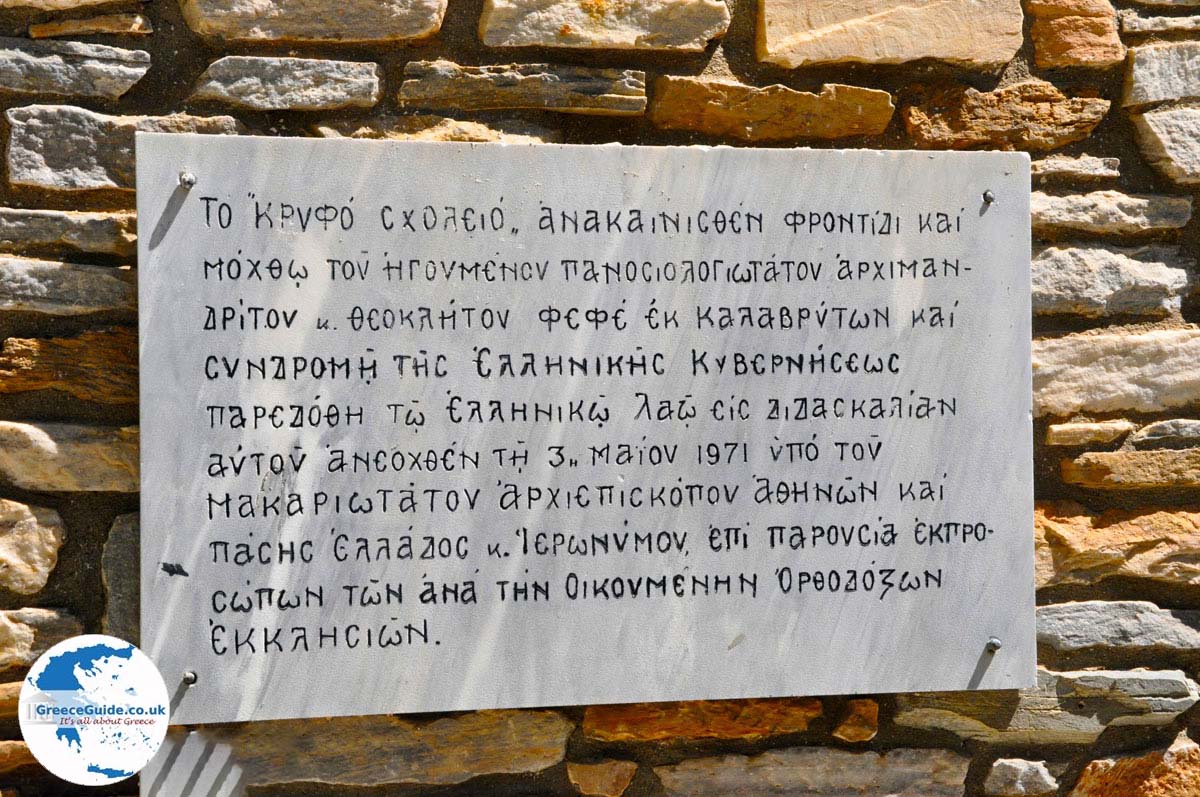 Τὸ "Κρυφό Σχολειό„ ἀνακαινισθέν φροντίδι καί
μόχθῳ τοῦ ἡγουμένου πανοσιολογιωτάτου ἀρχιμαν-
δρίτου κ. Θεοκλήτου Φεφέ ἐκ Καλαβρύτων καί
συνδρομῇ τῆς Ἑλληνικῆς Κυβερνήσεως
παρεδόθη τῷ Ἑλληνικῷ λαῷ εἰς διδασκαλίαν
αὐτοῦ ἀνεῳχθέν τῇ 3„ Μαΐου 1971 ὑπό τοῦ
Μακαριωτάτου Ἀρχιεπισκόπου Ἀθηνῶν καί
πάσης Ἑλλάδος κ. Ἱερωνύμου, ἐπί παρουσίᾳ ἐκπρο-
σώπων τῶν ἀνά τήν Οἰκουμένην Ὀρθοδόξων
Ἐκκλησιῶν.
GreeceGuide.co.uk
It's all about Greece